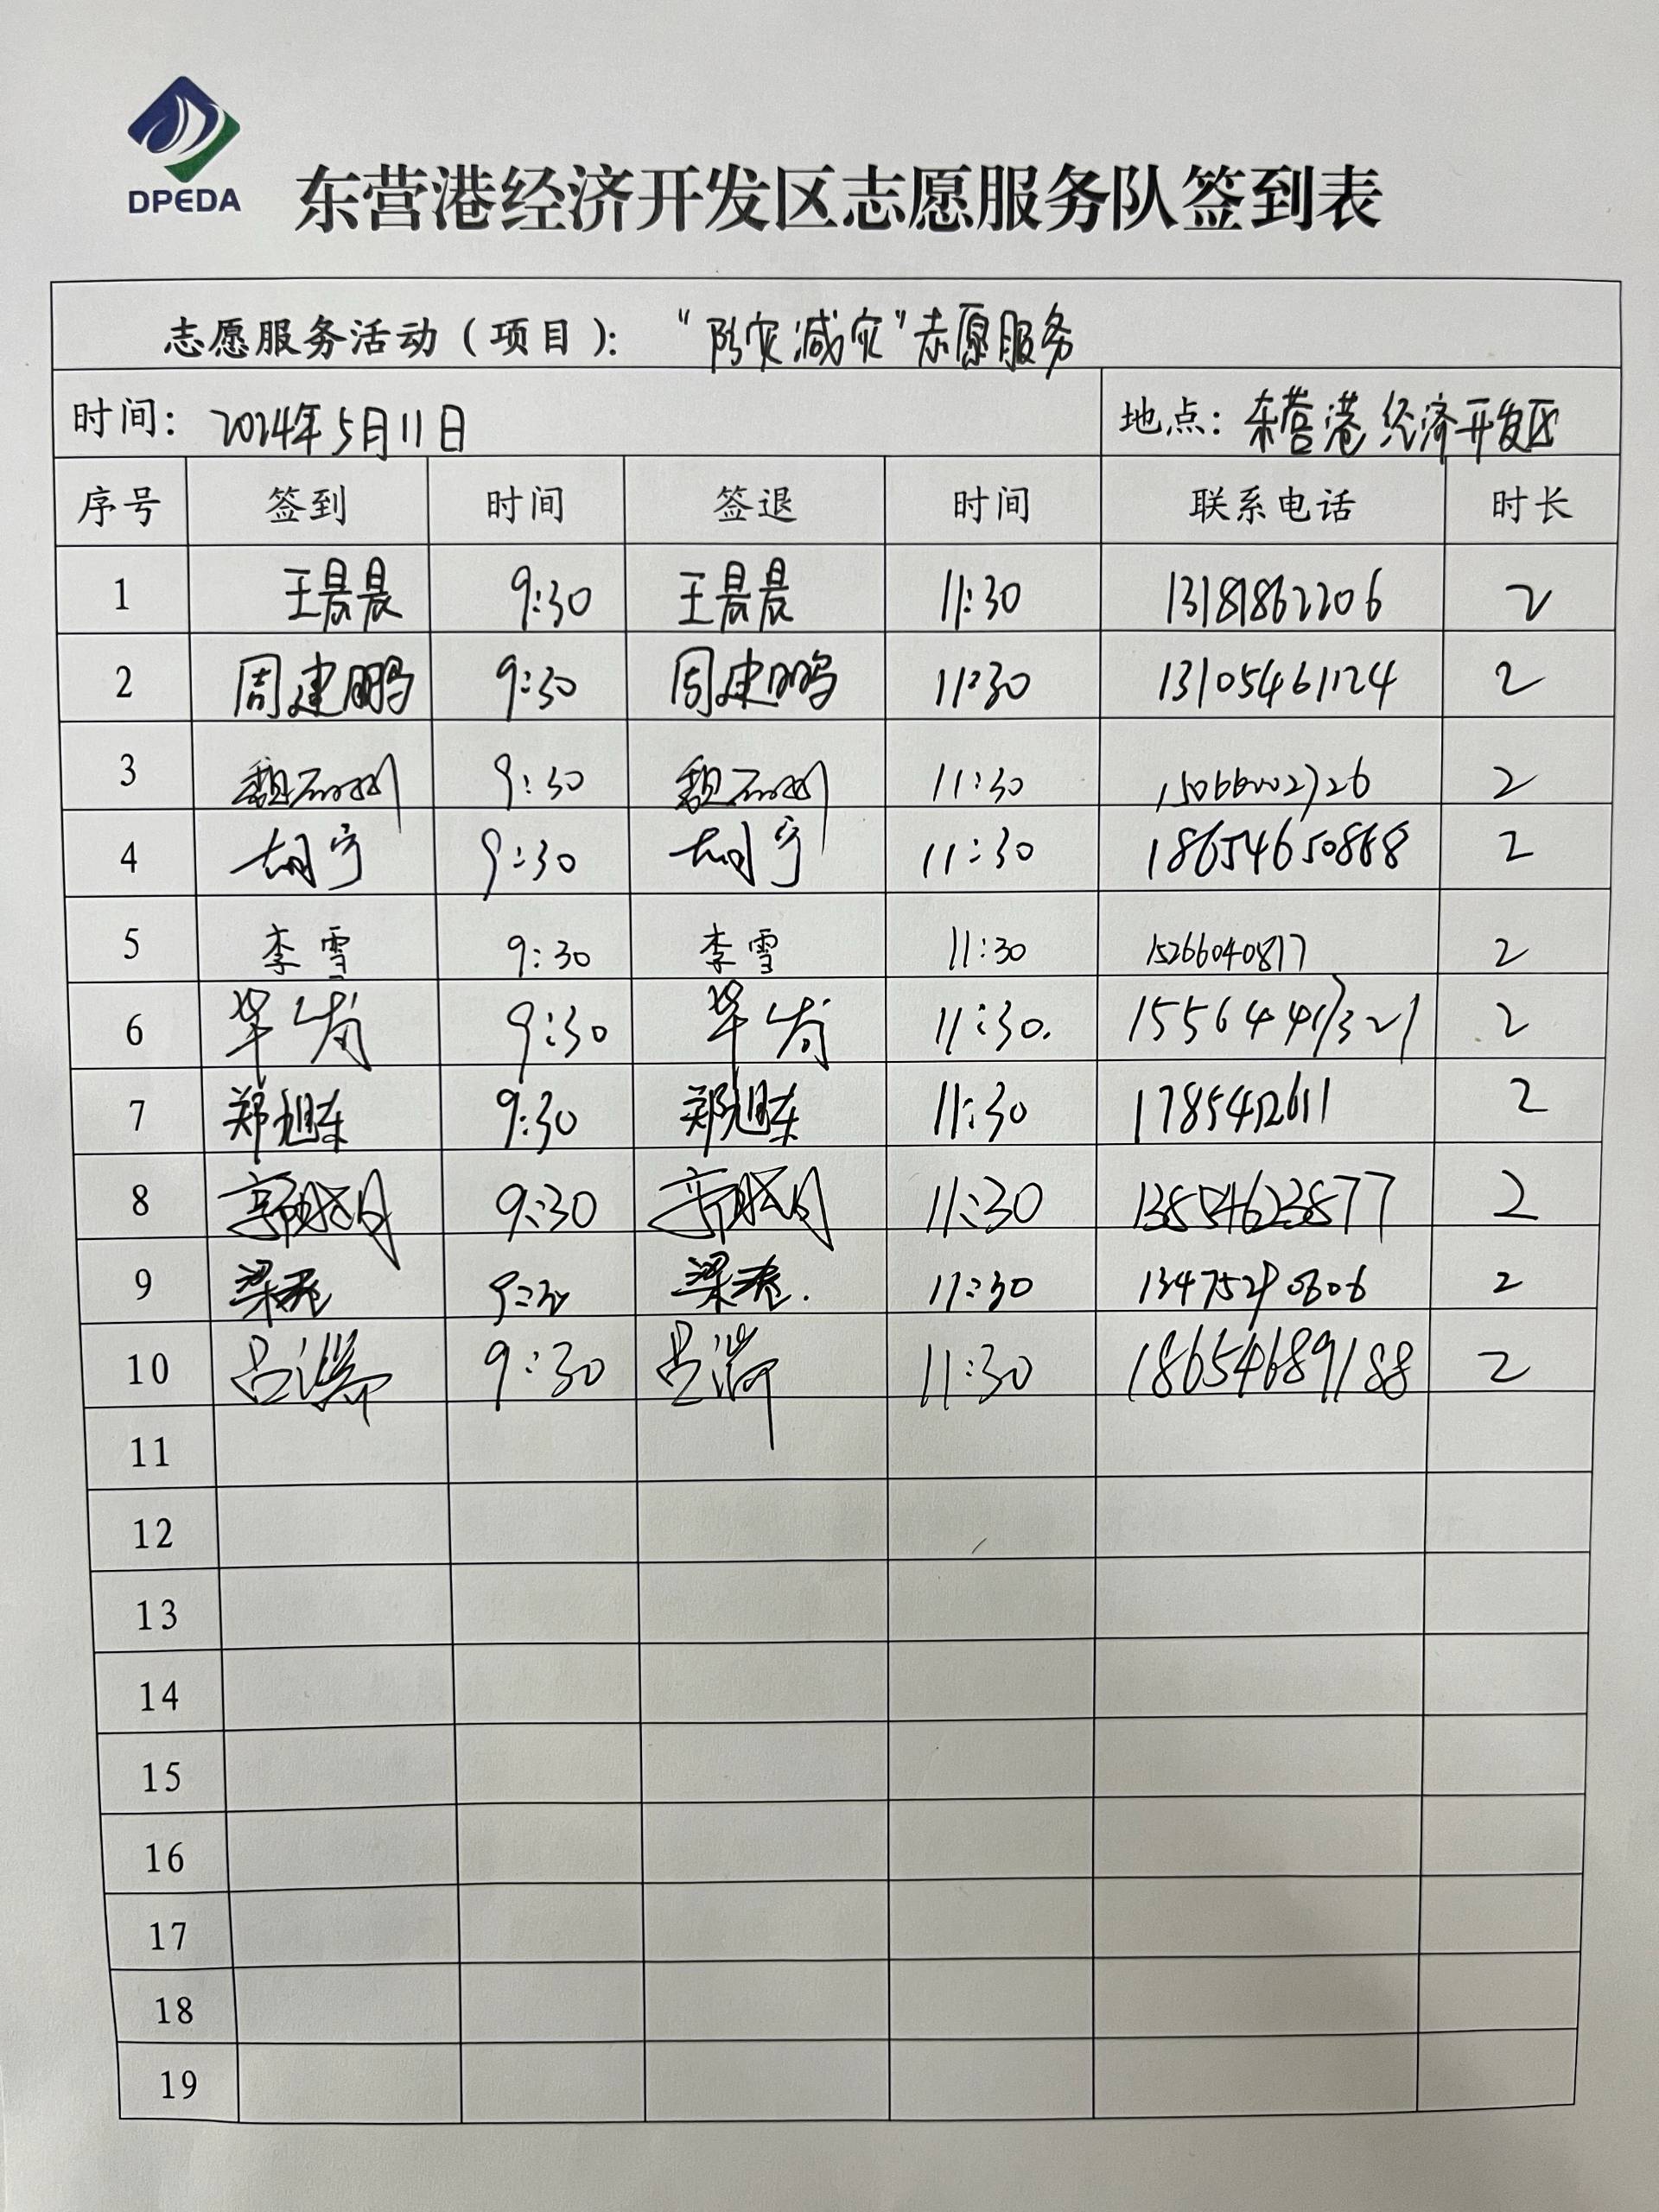 DPEDA
东营港经济开发区志愿服务队签到表
志愿服务活动（项目）：“防灾减灾”志愿服务
时间：2024年5月11日 地点：东营港经济开发区
序号 签到 时间 签退 时间 联系电话 时长
1 王晨晨 9:30 王晨晨 11:30 13181862206 2
2 周建鹏 9:30 周建鹏 11:30 13105461124 2
3 9:30 11:30 2
4 胡宁 9:30 胡宁 11:30 18654650868 2
5 李雪 9:30 李雪 11:30 15266040877 2
6 9:30 11:30. 2
7 郑旭东 9:30 郑旭东 11:30 2
8 9:30 11:30 13854623877 2
9 9:30 11:30 2
10 9:30 11:30 18654689188 2
11
12
13
14
15
16
17
18
19